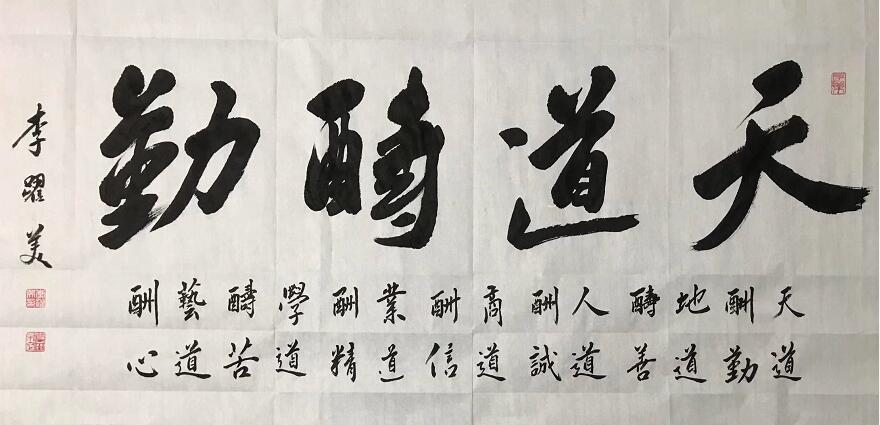 天道醻勤
天道
酬勤
地道
醻善
人道
酬誠
商道
酬信
業道
酬精
學道
醻苦
藝道
酬心
李曜美